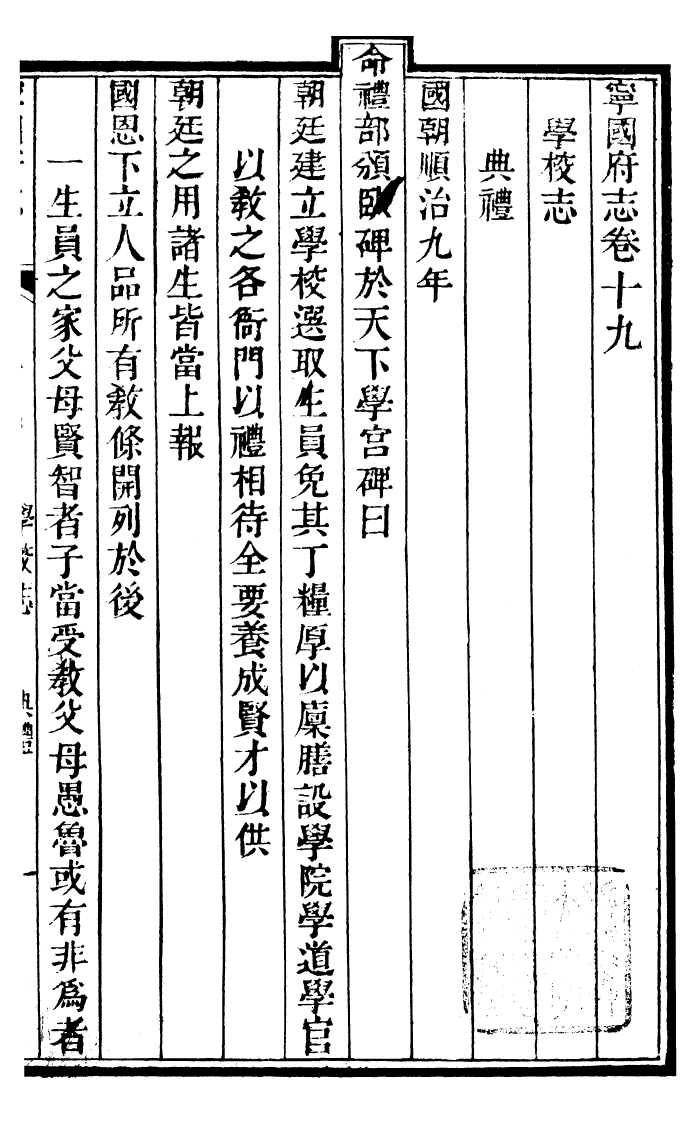 寧國府志卷十九
學校志
典禮
國朝順治九年
命禮部頒臥碑於天下學宮碑曰
朝廷建立學校選取生員免其丁糧厚以廩膳設學院學道學官
以教之各衙門以禮相待全要養成賢才以供
朝廷之用諸生皆當上報
國恩下立人品所有教條開列於後
一生員之家父母賢智者子當受教父母愚魯或有非爲者
學校志 典禮 一